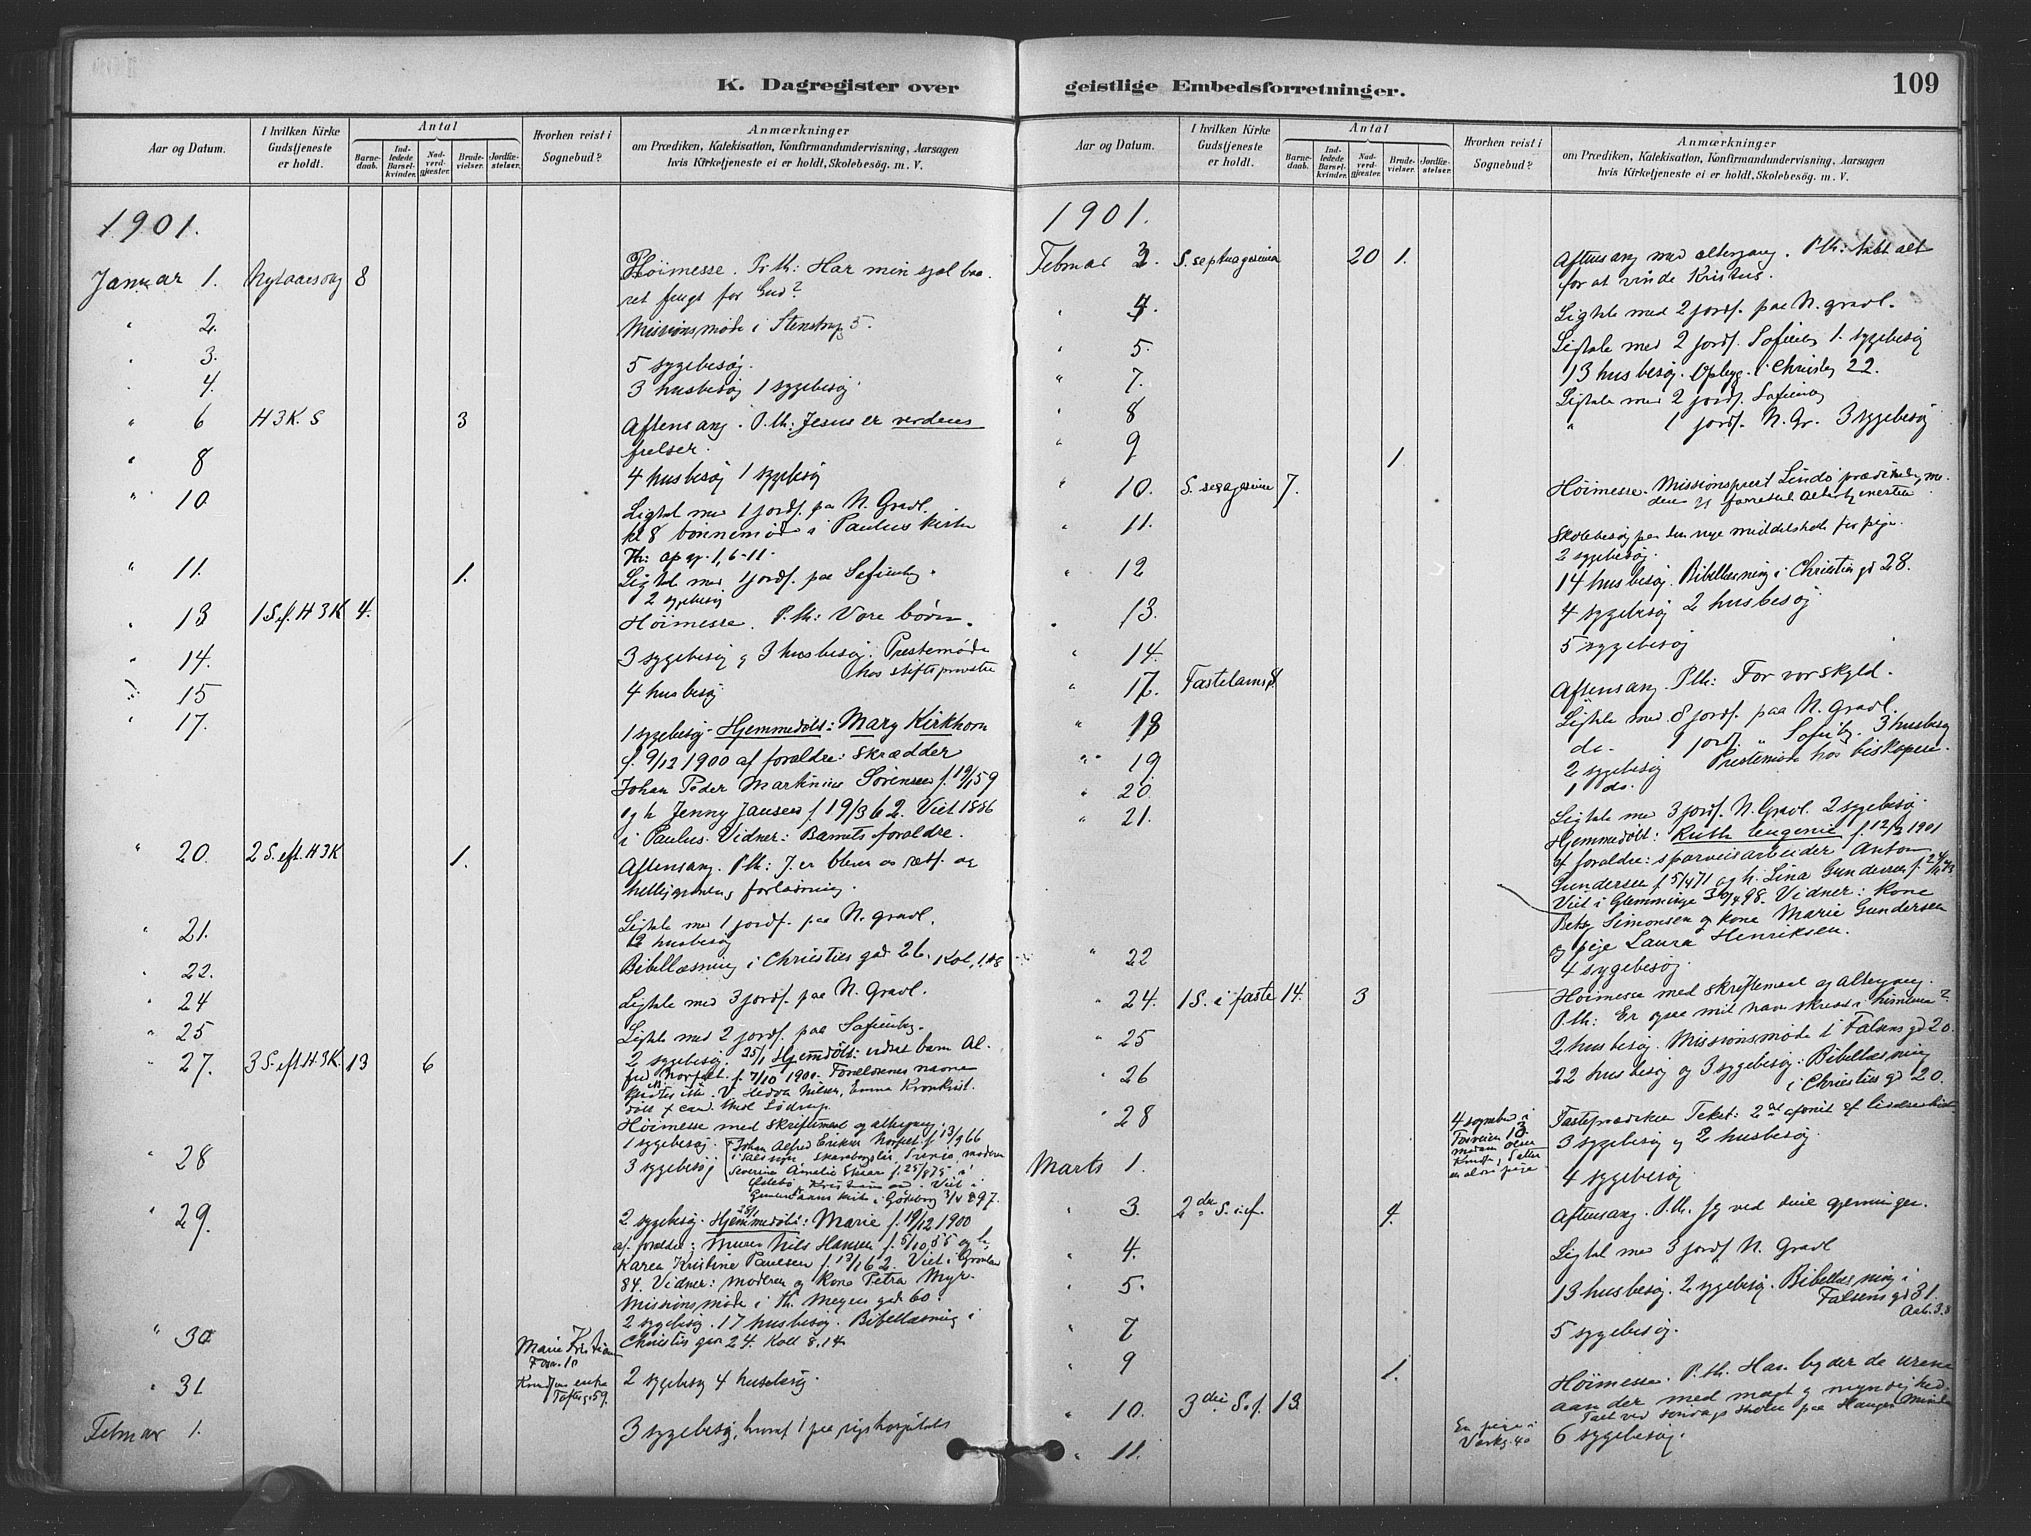 K. Dagregister over
Aar og Datum.
I hvilken Kirke
Gudstjeneste
er holdt.
Antal
Barne-
daab.
Ind-
ledede
Barsel-
kvinder.
Nad-
verd-
gjæster.
Brude-
vielser.
Jordfæ-
stelser.
Hvorhen reist i
Sognebud?
Anmærkninger
om Prædiken, Katekisation, Konfirmandundervisning, Aarsagen
hvis Kirketjeneste ei er holdt, Skolebesøg. m. V.
1901.
Januar 1. Nytaarsdag 8 Høimesse. Pr. th: Har min sjæl baa-
ret frugt for Gud?
" 2. Missionsmøde i Stenstrup 5.
" 3. 5 sygebesøg.
" 4. 3 husbesøg 1 sygebesøg.
" 6 H3K. S 3 Aftensang. P. th: Jesus er verdens
frelser.
" 8 4 husbesøg 1 sygebesøg
" 10 Ligtale med 1 jordf. paa N. Gravl.
kl 8 bønnemøde i Paulus kirke
Th: ap gj. 1, 6-11.
" 11. 1. Ligtale med 1 jordf. paa Sofienbg.
2 sygebesøg
" 13 1 S. ef. H3K 4. Høimesse. P. th: Vore børn.
" 14. 3 sygebesøg og 3 husbesøg. Prestemøde
hos stiftsprovsten
" 15 4 husbesøg
" 17. 1 sygebesøg. Hjemmedøbt: Mary Kirkhorn
f. 9/12 1900 af foreldre: Skrædder
Johan Peder Martinius Sørensen f. 19/1 59
og h. Jenny Jansen f. 19/3 62. Viet 1886
i Paulus. Vidner: Barnets foreldre.
" 20. 2 S. eft. H3K 1. Aftensang. P. th: J. er bleven os retf. og
helliggjørelse og forløsning.
" 21. Ligtale med 1 jordf. paa N. gravl.
12 husbesøg
" 22. Bibellæsning i Christies gad 26. Kol. 1.
" 24 Ligtale med 3 jordf. paa N. Gravl.
" 25 Ligtale med 2 jordf. paa Sofienbg.
" 27. 3 S. eft. H3K. 13 6 2 sygebesøg. 25/1 Hjemdøbt: barn Al-
fred f. 7/10 1900. Foreldrenes navne
V. Hedda Nilsen, Emma
døbt af cand.
Høimesse med skriftemaal og altergang.
" 28 1 sygebesøg. Johan Alfred Erikson f. 13/9 66
3 sygebesøg moderen
Severine Amalie f. 25/8 75 i
Viet i
kirke i Göteborg 3/4 97.
" 29. 2 sygebesøg. 25/1 Hjemmedøbt: Marie f. 19/12 1900
af. foreldre: Murer Nils Hansen f. 5/10 55 og h.
Karen Kristine Paulsen f. 13/1 62. Viet i Grønland
84. Vidner: moderen og kone Petra Myr.
Missionsmøde i Th. Meyers gad 60.
" 30 2 sygebesøg. 17 husbesøg. Bibellæsning i
Christies gad 24. Koll 8, 14
Marie Kristian
" 31 2 sygebesøg 4 husbesøg.
enke
Toftesg. 59.
Februar 1. 3 sygebesøg, hvoraf 1 paa rigshospitalet
geistlige Embedsforretninger.
109
Aar og Datum.
I hvilken Kirke
Gudstjeneste
er holdt.
Antal
Barne-
daab.
Ind-
ledede
Barsel-
kvinder.
Nad-
verd-
gjæster.
Brude-
vielser.
Jordfæ-
stelser.
Hvorhen reist i
Sognebud?
Anmærkninger
om Prædiken, Katekisation, Konfirmandundervisning, Aarsagen
hvis Kirketjeneste ei er holdt, Skolebesøg. m. V.
1901.
Februar 3. S. septuagesima 20 1. Aftensang med altergang. P. th: tabt alt
for at vinde Kristus.
" 4. Ligtale med 2 jordf. paa N. gravl.
" 5. Ligtale med 2 jordf. Sofienbg 1 sygebesøg
" 7. 13 husbesøg. Opbyg. i Christies 22.
" 8 Ligtale med 2 jordf. Sofienbg
" 9 1. " 1 jordf. N. Gr. 3 sygebesøg
" 10. S. sexagesima 7. Høimesse. Missionsprest Lindø prædikede, me-
den jeg forrettet altertjenesten
" 11. Skolebesøg paa den nye middelskole for piger.
2 sygebesøg.
" 12 14 husbesøg. Bibellæsning i Christies gd 28.
" 13. 4 sygebesøg 2 husbesøg
" 14. 5 sygebesøg
" 17. Fastelavns Aftensang. P. th: For vor skyld.
" 18 Ligtale med 8 jordf. paa N. Gravl.
do. 1 jordf " Sofienbg. 3 husbesøg
" 19 2 sygebesøg Prestemøde hos biskopen.
" 20 1 do.
" 21. Ligtale med 3 jordf. N. Gravl. 2 sygebesøg.
Hjemmedøbt: Ruth Eugenie f. 12/2 1901
af foreldre: sporveisarbeider Anton
Gundersen f. 5/4 71 og h. Lina Gundersen f.
Viet i Glemminge 98. Vidner: kone
Betsy Simonsen og kone Marie Gundersen
og pige Laura Henriksen.
" 22 4 sygebesøg.
" 24. 1 S. i faste 14. 3 Høimesse med skriftemaal og altergang.
P. th: Er ogsaa mit navn skrevet i himlene?
" 25 2 husbesøg. Missionsmøde i Falsens gd 20.
" 26 22 husbesøg og 3 sygebesøg. Bibellæsning
i Christies gd 20.
" 28 4 sognebud i Fasteprædiken Tekst: 2det afsnit af lidelseshist.
3 sygebesøg og 2 husbesøg.
Marts 1. 4 sygebesøg.
" 3. 2den S. i f. 4. Aftensang. P. th. Jeg ved dine gjerninger.
" 4. Ligtale med 3 jordf. N. Gravl
" 5. 13 husbesøg. 2 sygebesøg. Bibellæsning i
Falsens gd 31.
" 7 5 sygebesøg.
" 9 1.
" 10. 3die S. i f. 13 Høimesse. P. th. Han byder de urene
aander med magt og myndighed.
Talt ved søndagsskolen paa Hauges Minde
" 11. En pige i 6 sygebesøg.
Verksg. 40